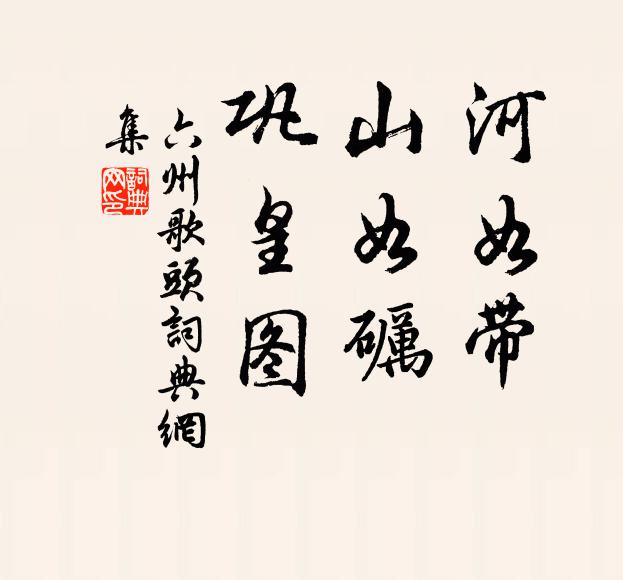 河如带
山如礪
巩皇图
六州歌頭詞典網
集
詞典
网印